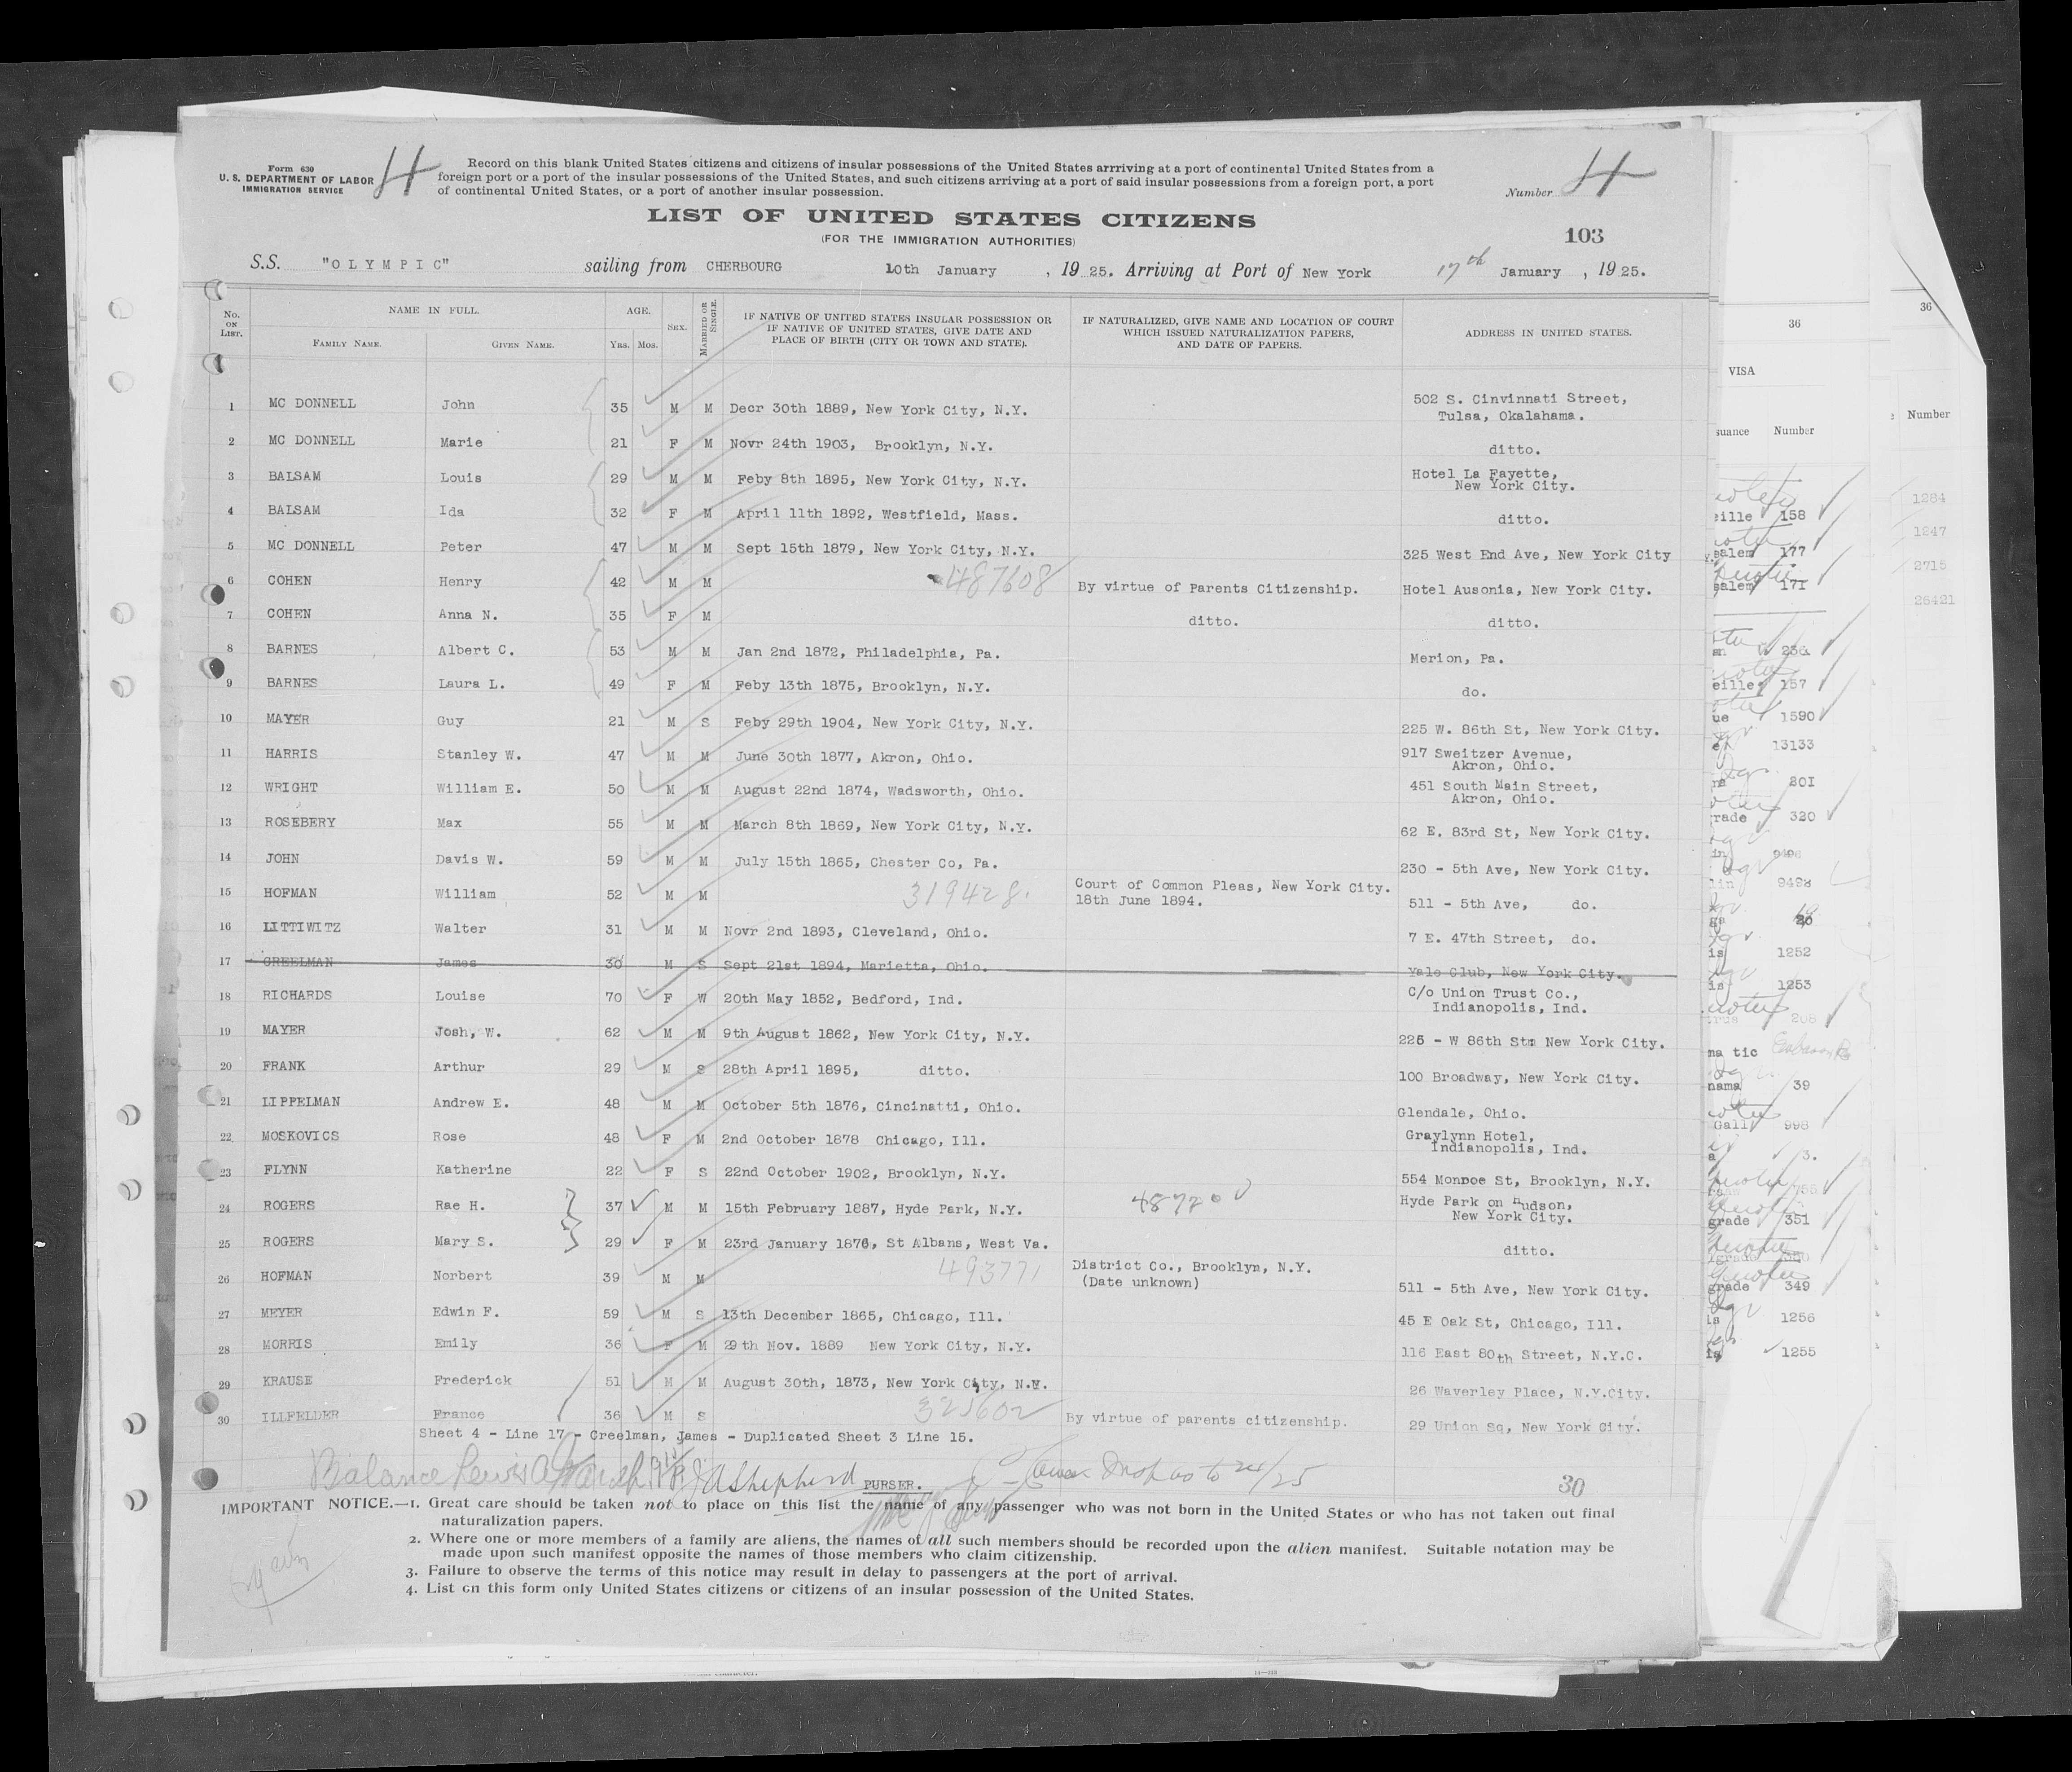 Form 630
U. S. DEPARTMENT OF LABOR
IMMIGRATION SERVICE
4
Record on this blank United States citizens and citizens of insular possessions of the United States arrriving at a port of continental United States from a
foreign port or a port of the insular possessions of the United States, and such citizens arriving at a port of said insular possessions from a foreign port, a port
of continental United States, or a port of another insular possession.
Number 4
LIST OF UNITED STATES CITIZENS
(FOR THE IMMIGRATION AUTHORITIES)
103
S.S. "OLYMPIC" sailing from CHERBOURG 10th January , 19 25. Arriving at Port of New York 17th January , 19 25.
No. ON LIST. NAME IN FULL. FAMILY NAME. GIVEN NAME. AGE. Yrs. Mos. SEX. MARRIED OR SINGLE. IF NATIVE OF UNITED STATES INSULAR POSSESSION OR IF NATIVE OF UNITED STATES, GIVE DATE AND PLACE OF BIRTH (CITY OR TOWN AND STATE). IF NATURALIZED, GIVE NAME AND LOCATION OF COURT WHICH ISSUED NATURALIZATION PAPERS, AND DATE OF PAPERS. ADDRESS IN UNITED STATES.
1 MC DONNELL John 35 M M Decr 30th 1889, New York City, N.Y. 502 S. Cinvinnati Street, Tulsa, Okalahama.
2 MC DONNELL Marie 21 F M Novr 24th 1903, Brooklyn, N.Y. ditto.
3 BALSAM Louis 29 M M Feby 8th 1895, New York City, N.Y. Hotel La Fayette, New York City.
4 BALSAM Ida 32 F M April 11th 1892, Westfield, Mass. ditto.
5 MC DONNELL Peter 47 M M Sept 15th 1879, New York City, N.Y. 325 West End Ave, New York City
6 COHEN Henry 42 M M 487608 By virtue of Parents Citizenship. Hotel Ausonia, New York City.
7 COHEN Anna N. 35 F M ditto. ditto.
8 BARNES Albert C. 53 M M Jan 2nd 1872, Philadelphia, Pa. Merion, Pa.
9 BARNES Laura L. 49 F M Feby 13th 1875, Brooklyn, N.Y. do.
10 MAYER Guy 21 M S Feby 29th 1904, New York City, N.Y. 225 W. 86th St, New York City.
11 HARRIS Stanley W. 47 M M June 30th 1877, Akron, Ohio. 917 Sweitzer Avenue, Akron, Ohio.
12 WRIGHT William E. 50 M M August 22nd 1874, Wadsworth, Ohio. 451 South Main Street, Akron, Ohio.
13 ROSEBERY Max 55 M M March 8th 1869, New York City, N.Y. 62 E. 83rd St, New York City.
14 JOHN Davis W. 59 M M July 15th 1865, Chester Co, Pa. 230 - 5th Ave, New York City.
15 HOFMAN William 52 M M 319428. Court of Common Pleas, New York City. 18th June 1894. 511 - 5th Ave, do.
16 LITTIWITZ Walter 31 M M Novr 2nd 1893, Cleveland, Ohio. 7 E. 47th Street, do.
17 CREELMAN James 30 M S Sept 21st 1894, Marietta, Ohio. Yale Club, New York City.
18 RICHARDS Louise 70 F W 20th May 1852, Bedford, Ind. C/o Union Trust Co., Indianopolis, Ind.
19 MAYER Josh, W. 62 M M 9th August 1862, New York City, N.Y. 225 - W 86th Stm New York City.
20 FRANK Arthur 29 M S 28th April 1895, ditto. 100 Broadway, New York City.
21 LIPPELMAN Andrew E. 48 M M October 5th 1876, Cincinatti, Ohio. Glendale, Ohio.
22 MOSKOVICS Rose 48 F M 2nd October 1878 Chicago, Ill. Graylynn Hotel, Indianopolis, Ind.
23 FLYNN Katherine 22 F S 22nd October 1902, Brooklyn, N.Y. 554 Monroe St, Brooklyn, N.Y.
24 ROGERS Rae H. 37 M M 15th February 1887, Hyde Park, N.Y. 487200 Hyde Park on Hudson, New York City.
25 ROGERS Mary S. 29 F M 23rd January 1876, St Albans, West Va. ditto.
26 HOFMAN Norbert 39 M M 493771 District Co., Brooklyn, N.Y. (Date unknown) 511 - 5th Ave, New York City.
27 MEYER Edwin F. 59 M S 13th December 1865, Chicago, Ill. 45 E Oak St, Chicago, Ill.
28 MORRIS Emily 36 F M 29th Nov. 1889 New York City, N.Y. 116 East 80th Street, N.Y.C.
29 KRAUSE Frederick 51 M M August 30th, 1873, New York City, N.Y. 26 Waverley Place, N.Y.City.
30 ILLFELDER France 36 M S 325602 By virtue of parents citizenship. 29 Union Sq, New York City.
Sheet 4 - Line 17 - Creelman, James - Duplicated Sheet 3 Line 15.
Balance Lewis A Shepherd PURSER.
30
IMPORTANT NOTICE.—1. Great care should be taken not to place on this list the name of any passenger who was not born in the United States or who has not taken out final
naturalization papers.
2. Where one or more members of a family are aliens, the names of all such members should be recorded upon the alien manifest. Suitable notation may be
made upon such manifest opposite the names of those members who claim citizenship.
3. Failure to observe the terms of this notice may result in delay to passengers at the port of arrival.
4. List on this form only United States citizens or citizens of an insular possession of the United States.
36
VISA
suance Number
158
177
171
157
1590
13133
301
320
9498
20
1252
1253
39
998
351
349
1256
1255
36
Number
1284
1247
2715
26421